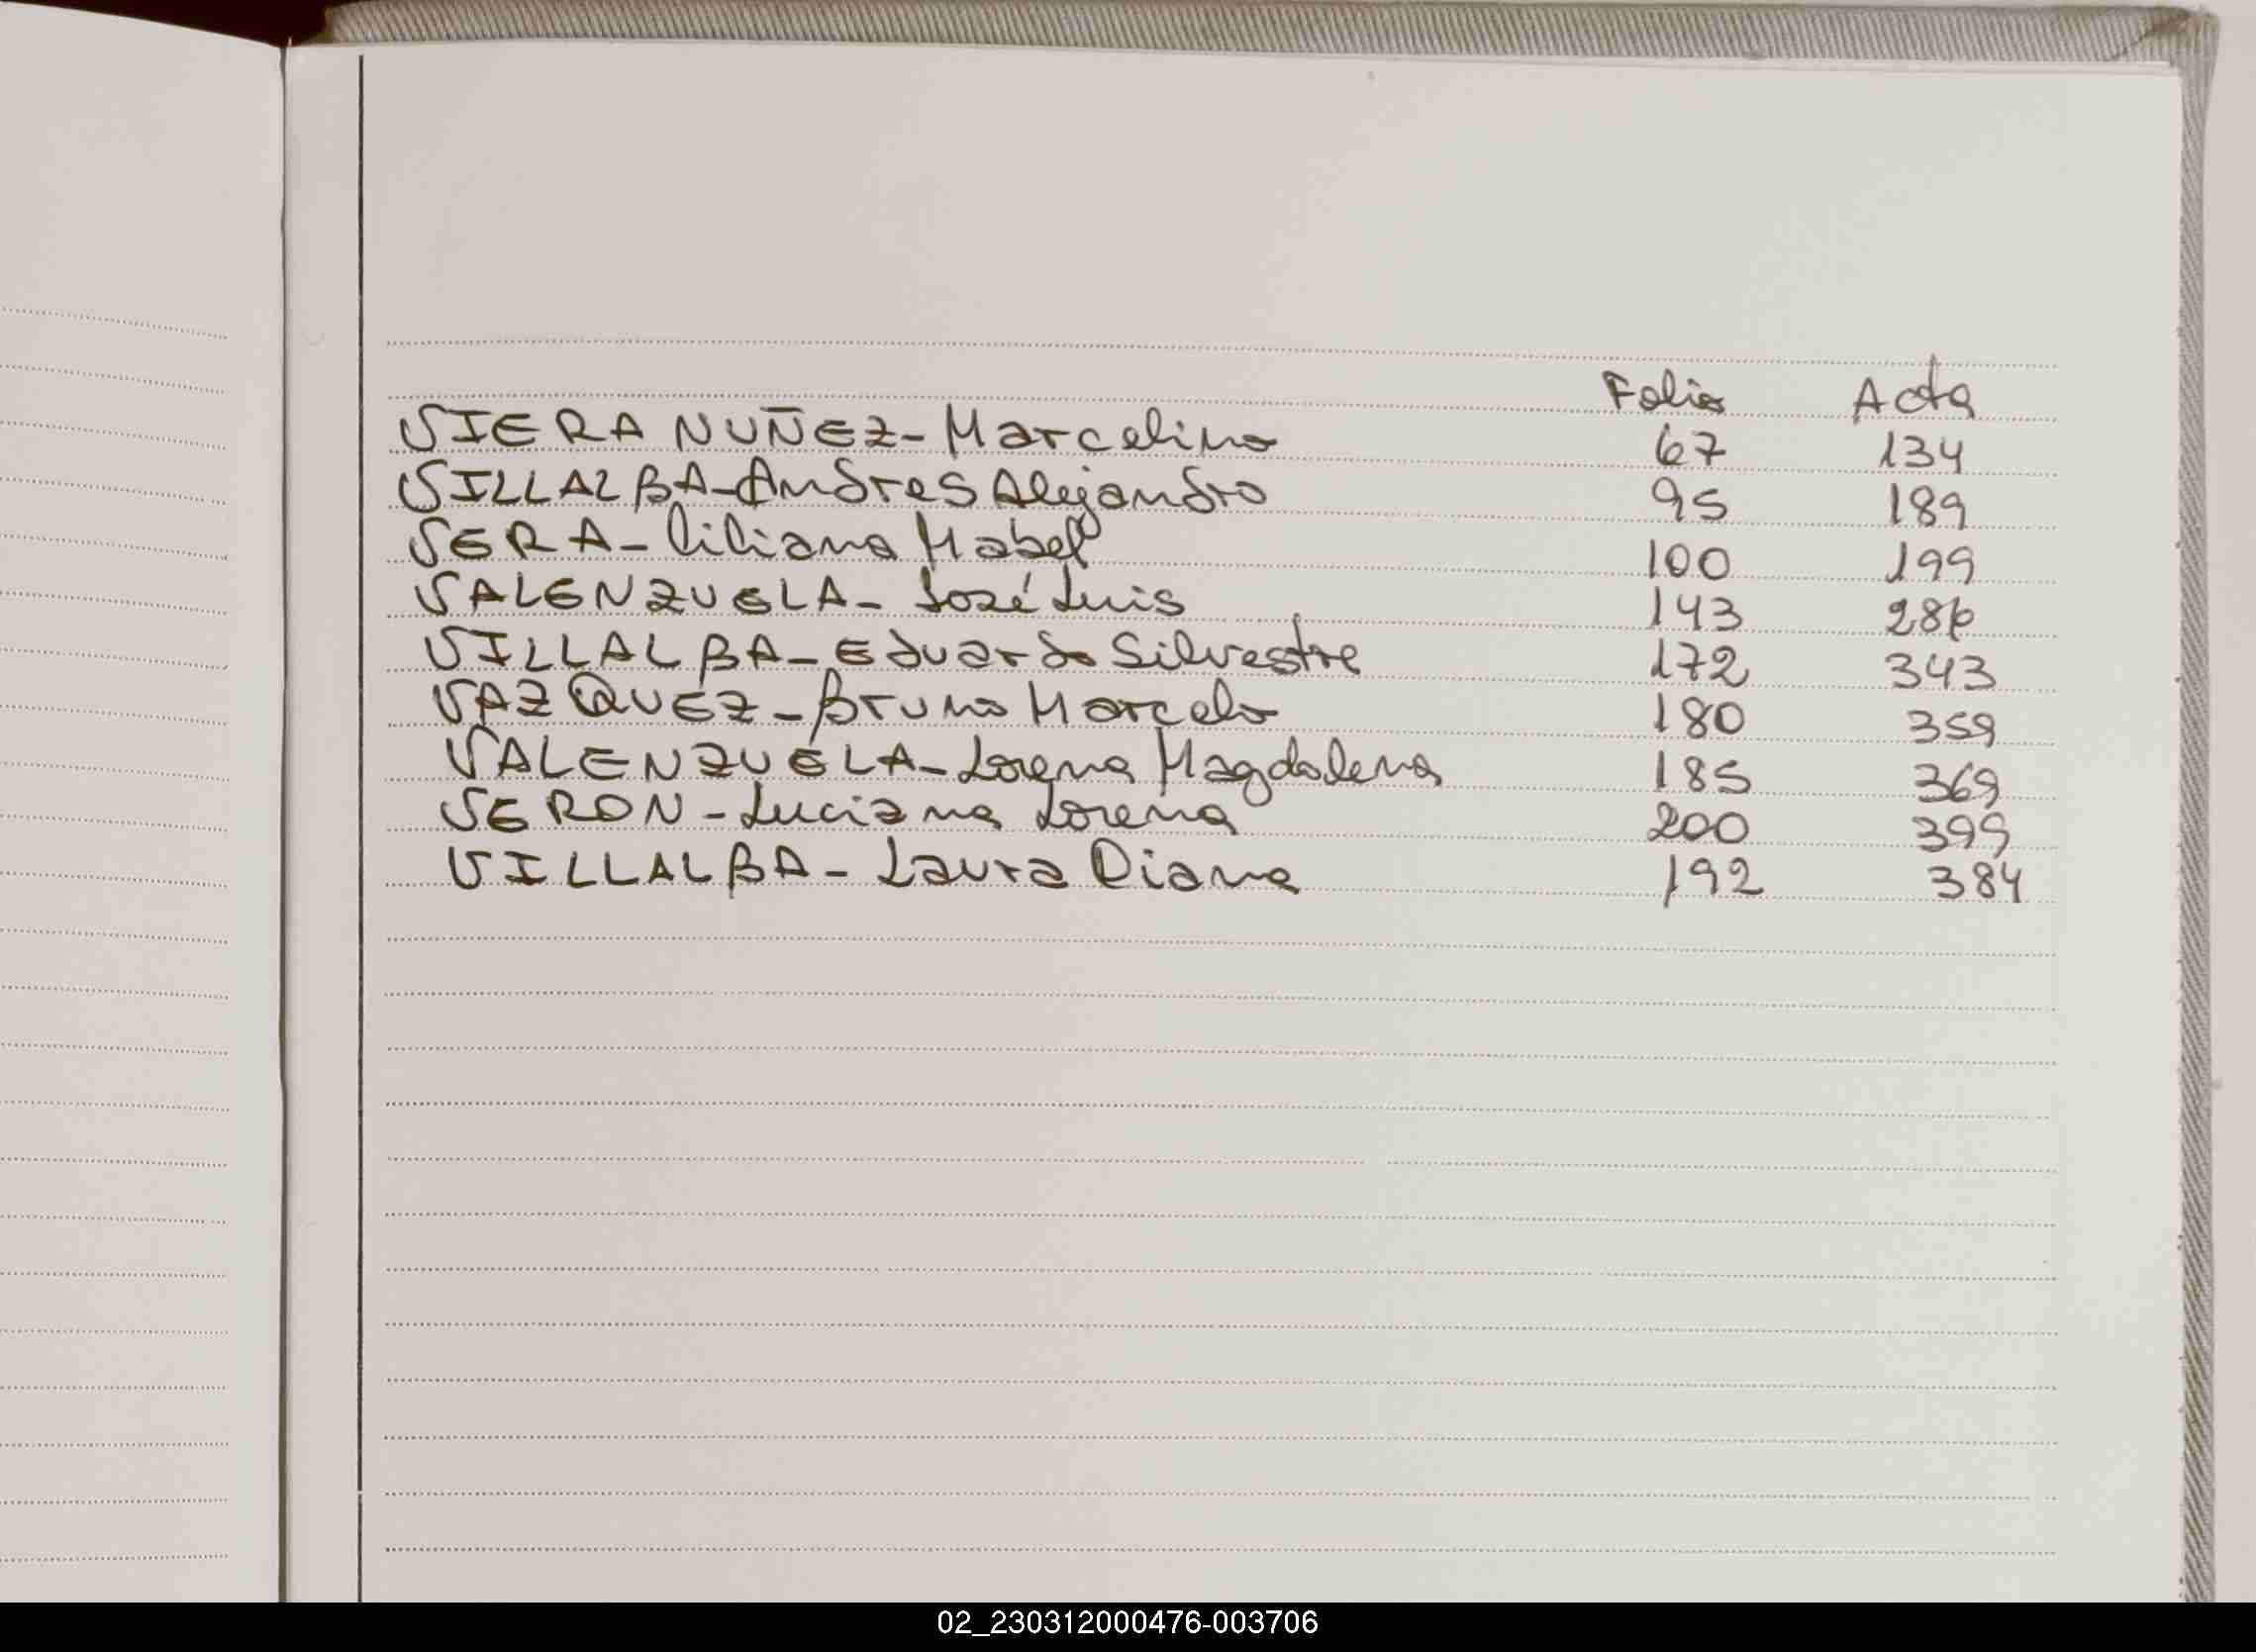 Folio Acta
VIERA NUÑEZ - Marcelino 67 134
VILLALBA - Andres Alejandro 95 189
VERA - Liliana Mabel 100 199
VALENZUELA - José Luis 143 286
VILLALBA - Eduardo Silvestre 172 343
VAZQUEZ - Bruno Marcelo 180 359
VALENZUELA - Lorena Magdalena 185 369
VERON - Luciana Lorena 200 399
VILLALBA - Laura Diana 192 384
02_230312000476-003706